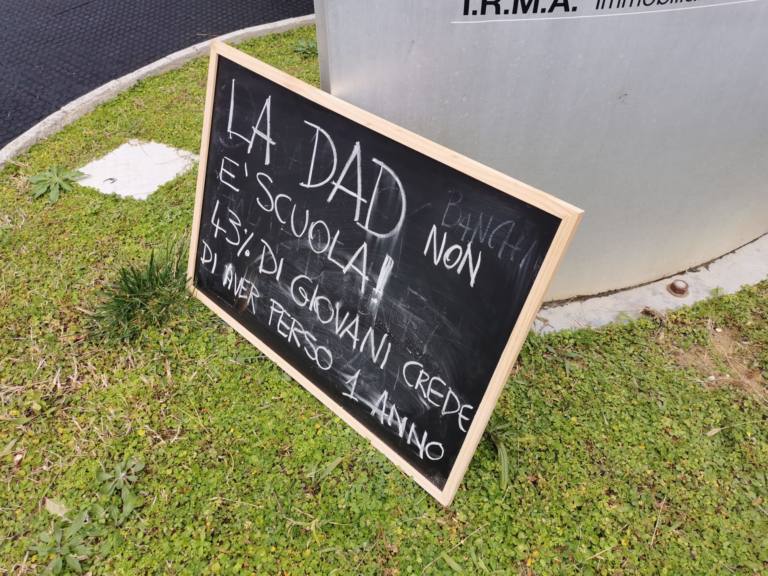 I.R.M.A. immobilia
LA DAD NON
E' SCUOLA!
43% DI GIOVANI CREDE
DI AVER PERSO 1 ANNO
BANCHI